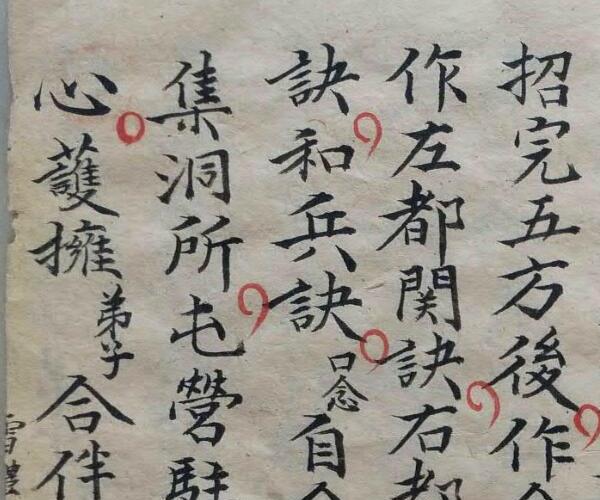 招完五方後，作
作左都関訣，右都
訣，和兵訣，口念自
集洞所屯，營駐
心。護擁弟子合伴